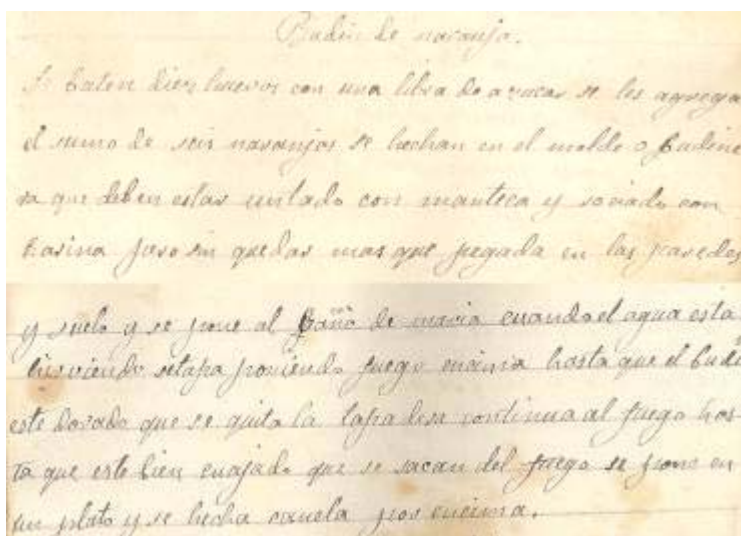 Budin de naranja.
Se baten diez huevos con una libra de azucar se les agrega
el sumo de seis naranjas se hechan en el molde o budine
ra que deben estar untado con manteca y rociado con
harina pero sin quedar mas que pegada en las paredes
y suelo y se pone al baño de maria cuando el agua está
hirviendo se tapa poniendo fuego encima hasta que el budin
este dorado que se quita la tapa continua al fuego has
ta que este bien cuajado que se sacan del fuego se pone en
un plato y se hecha canela por encima.